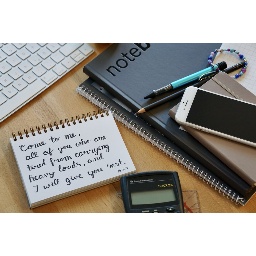 noteb
Come to me,
all of you who are
tired from carrying
heavy loads, and
I will give you rest.